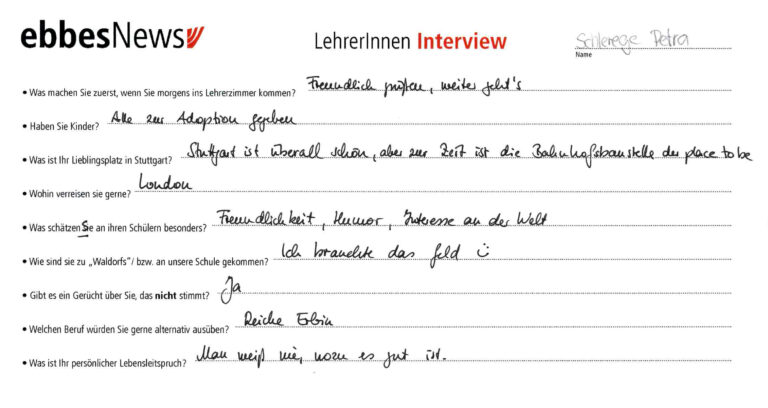 ebbesNews
LehrerInnen Interview
Schlenege Petra
Name
• Was machen Sie zuerst, wenn Sie morgens ins Lehrerzimmer kommen? Freundlich grüßen, weiter geht's
• Haben Sie Kinder? Alle zur Adoption gegeben
• Was ist Ihr Lieblingsplatz in Stuttgart? Stuttgart ist überall schön, aber zur Zeit ist die Bahnhofsbaustelle der place to be
• Wohin verreisen sie gerne? London
• Was schätzen Sie an ihren Schülern besonders? Freundlichkeit, Humor, Interesse an der Welt
• Wie sind sie zu „Waldorfs"/ bzw. an unsere Schule gekommen? Ich brauchte das Geld ☺
• Gibt es ein Gerücht über Sie, das nicht stimmt? Ja
• Welchen Beruf würden Sie gerne alternativ ausüben? Reiche Erbin
• Was ist Ihr persönlicher Lebensleitspruch? Man weiß nie, wozu es gut ist.